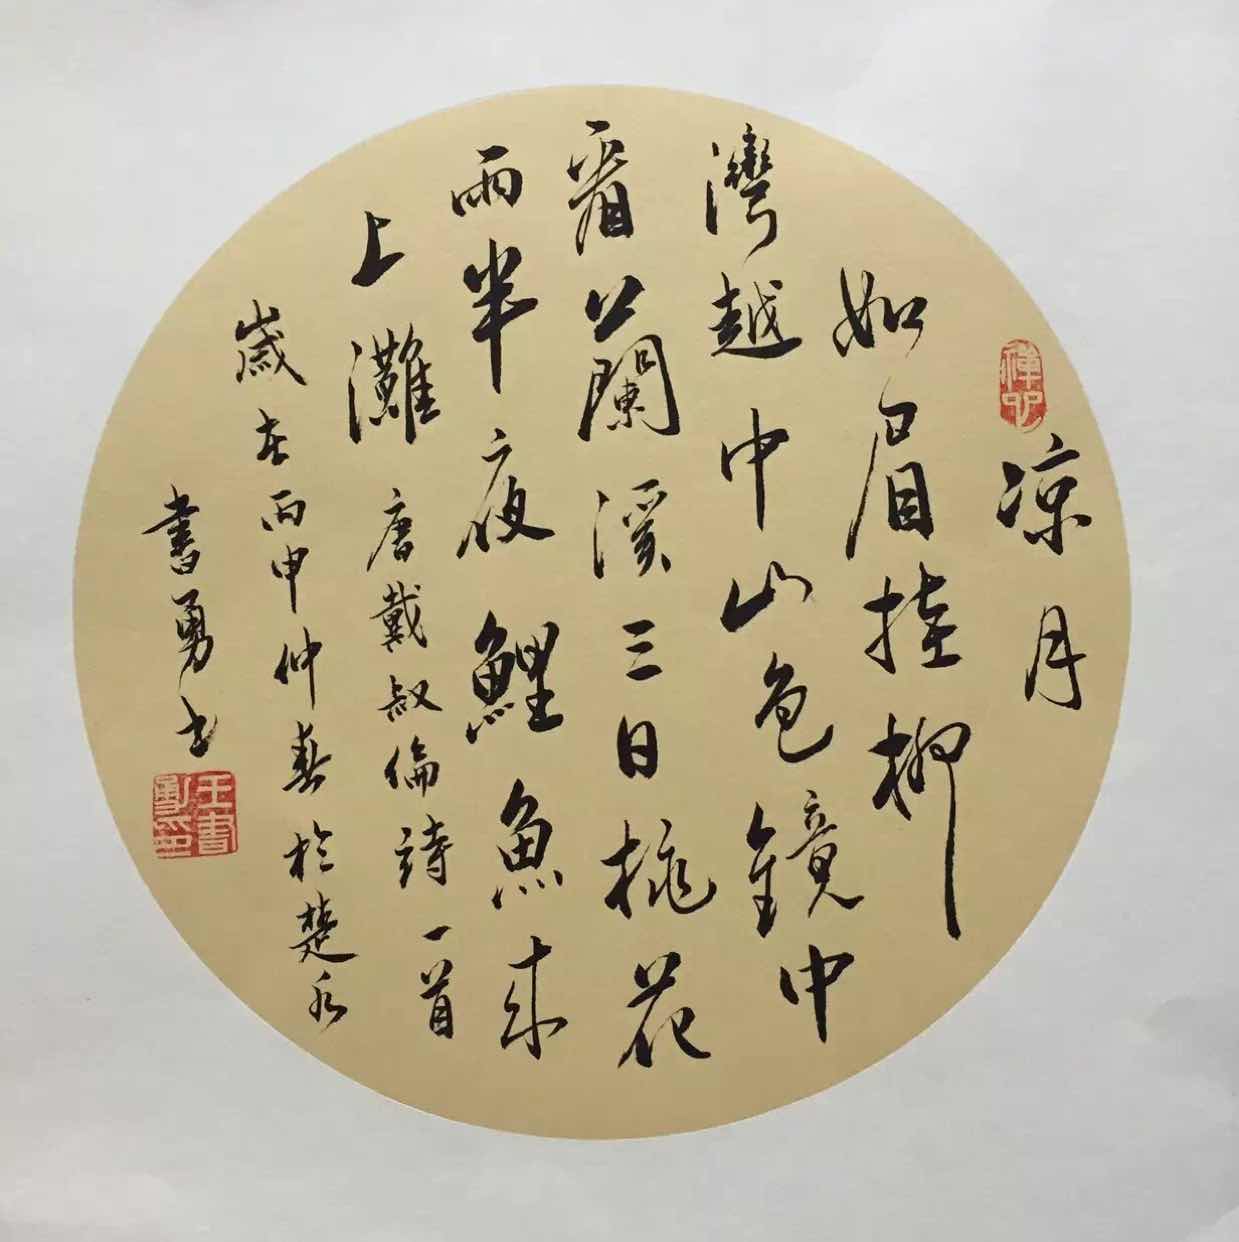 凉月
如眉挂柳
灣越中山色鏡中
看 蘭溪三日桃花
雨半夜鯉魚來
上灘 唐戴叔倫詩一首
歲在丙申仲春於楚水
書勇书
王書勇印